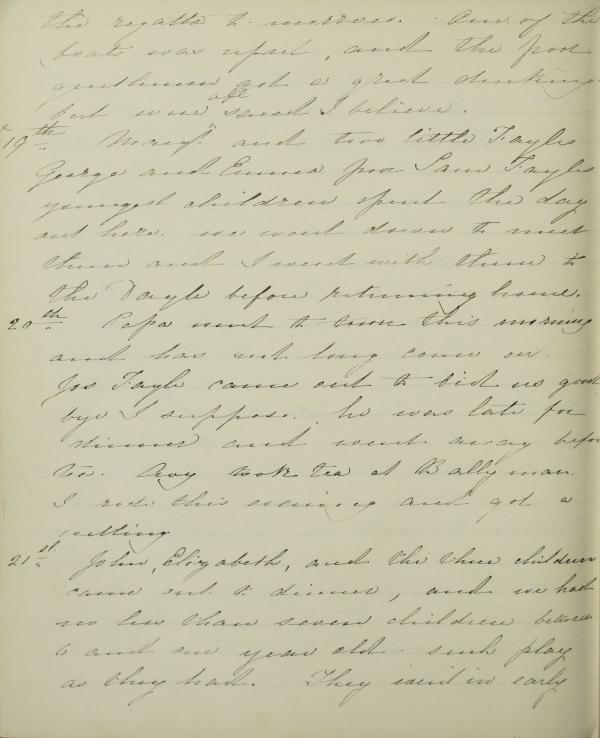 the regatta to morrow. One of the
boats was upset, and the poor
gentlemen got a great ducking
but were all saved I believe.
19th and two little Fayles
George and Emma poor Sam Fayles
youngest children spent the day
out here. we went down to meet
them and I went with them to
the Dargle before returning home.
20th Papa went to town this morning
and has not long come in.
Jos Fayle came out to bid us good
bye I suppose. he was late for
dinner and went away before
tea. Avy took tea at Ballyman.
I rode this evening and got a
wetting
21st John, Elizabeth, and the three children
came out to dinner, and we had
no less than seven children between
6 and one year old - such play
as they had. They went in early